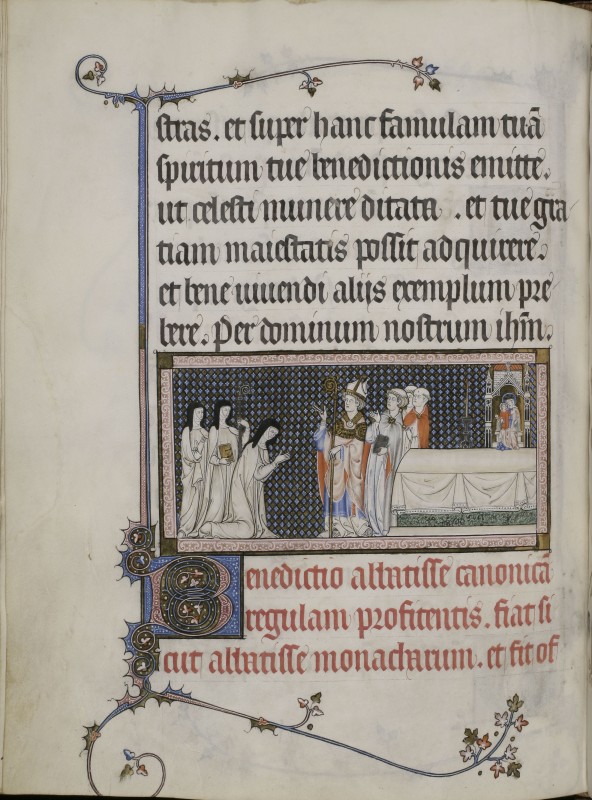 stras. et super hanc famulam tuā
spiritum tue benedictionis emitte.
ut celesti munere ditata . et tue gra
tiam maiestatis possit adquirere.
et bene uiuendi aliis exemplum pre
bere. Per dominum nostrum ihm̄.
Benedictio abbatisse canonicā
regulam profitentis. fiat si
cut abbatisse monacharum. et fit of